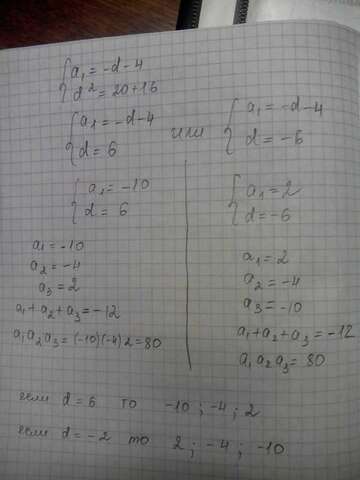 { a₁ = -d-4
{ d² = 20+16
{ a₁ = -d-4 или { a₁ = -d-4
{ d = 6 { d = -6
{ a₁ = -10 { a₁ = 2
{ d = 6 { d = -6
a₁ = -10
a₂ = -4
a₃ = 2
a₁+a₂+a₃ = -12
a₁a₂a₃ = (-10)(-4)2 = 80
a₁ = 2
a₂ = -4
a₃ = -10
a₁+a₂+a₃ = -12
a₁a₂a₃ = 80
если d = 6 то -10 ; -4 ; 2
если d = -2 то 2 ; -4 ; -10